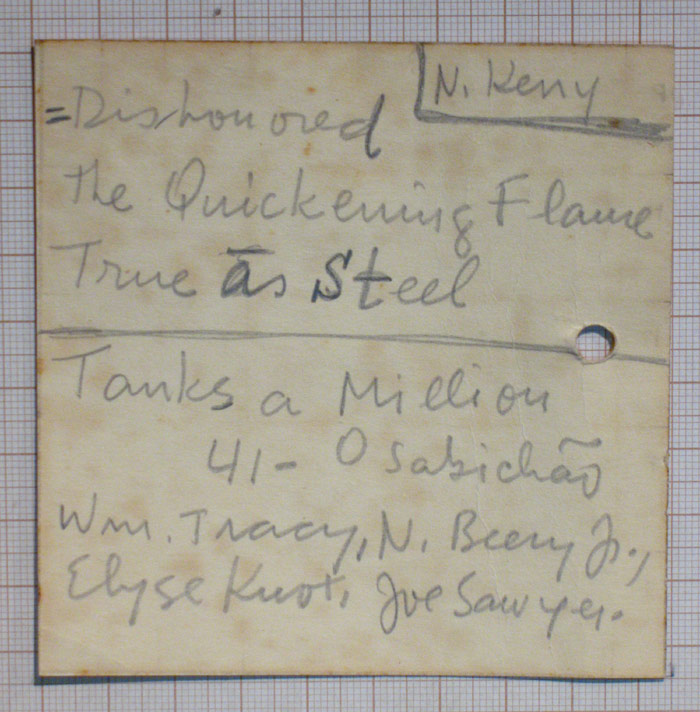 N. Kerry
=Dishonored
the Quickening Flame
True as Steel
Tanks a Million
41- O Sabichão
Wm. Tracy, N. Beery Jr.,
Elyse Knot, Joe Sawyer.